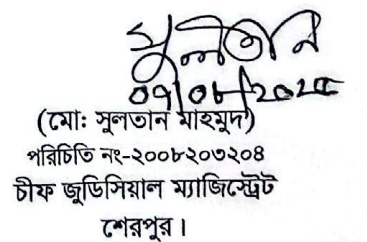 সুলতান
০৭/০৮/২০২৫
(মো: সুলতান মাহমুদ)
পরিচিতি নং-২০০৮২০৩২০৪
চীফ জুডিসিয়াল ম্যাজিস্ট্রেট
শেরপুর।